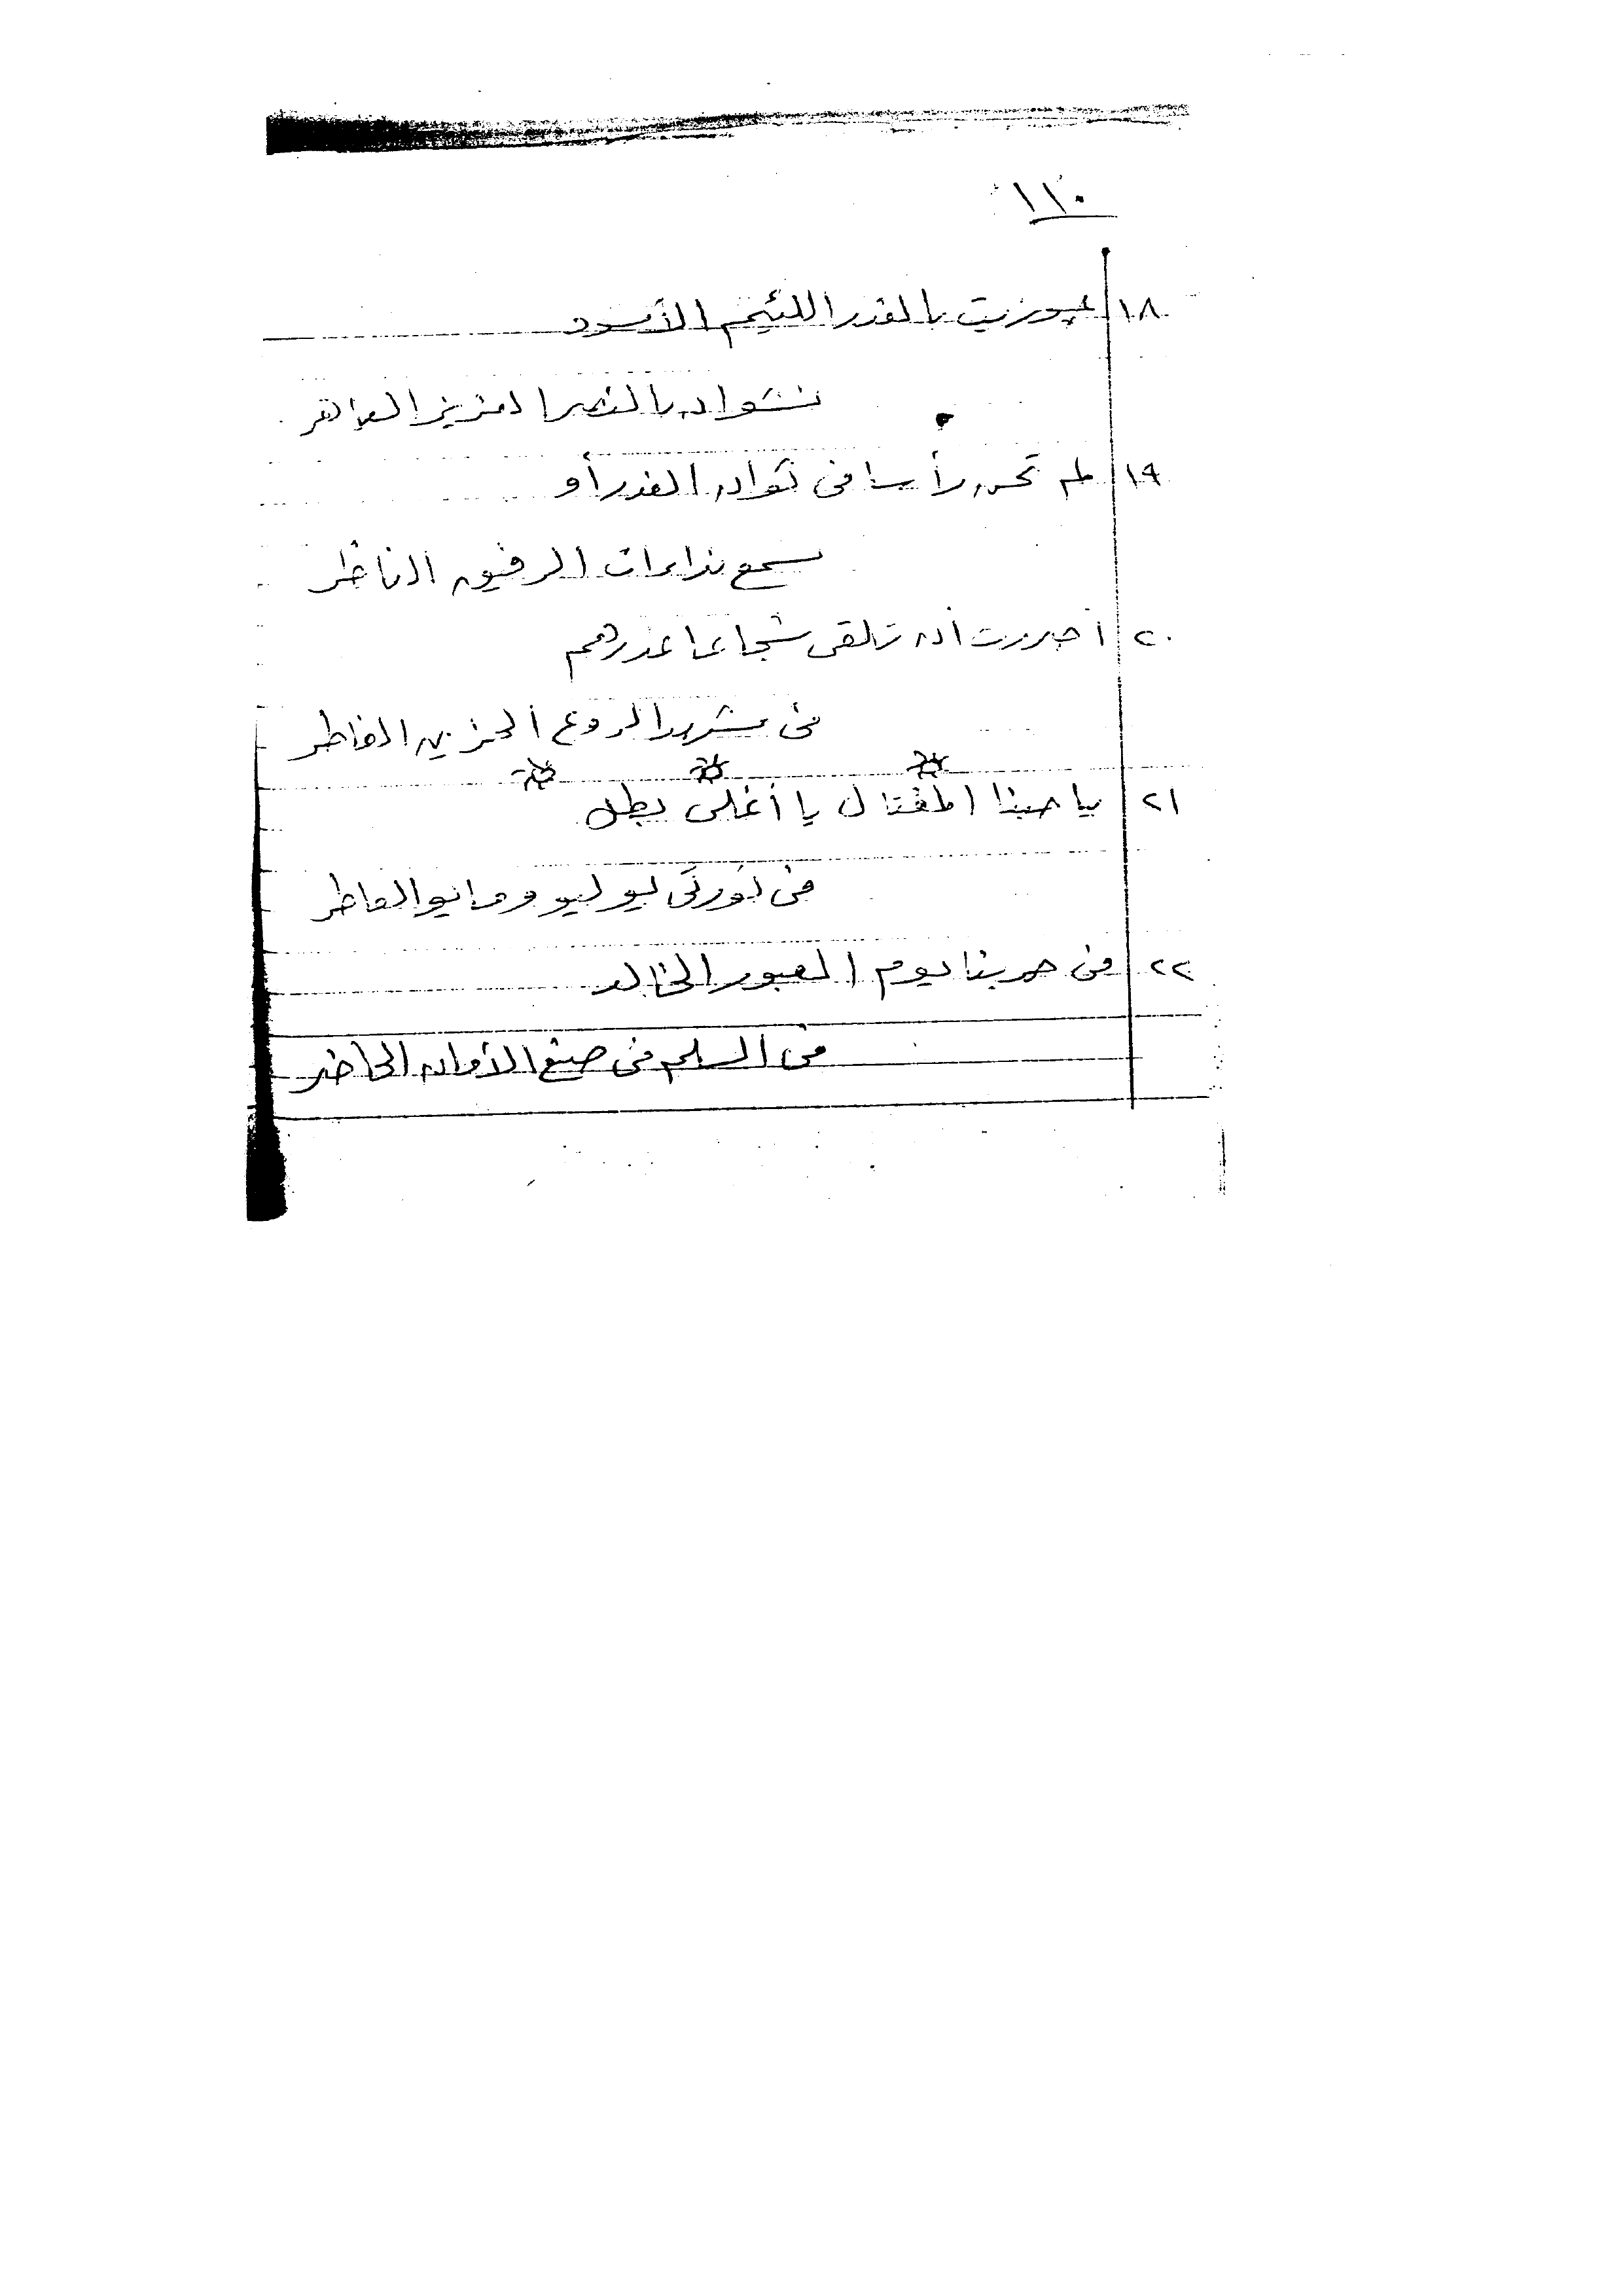 ١١٠
١٨ جوزيت بالغدر اللئيم الأسود
نشوان بالنصر العزيز الباهر
١٩ لم تحن رأسا في ثوان الغدر أو
تسمع نداءات الرفيق الناظر
٢٠ أصررت أن تلقى شجاعا غدرهم
في مشهد الروع الحزين الفاطر
٢١ يا حبنا المغتال يا أغلى بطل
في ثورتى يوليو ومايو العاطر
٢٢ في حربنا يوم العبور الخالد
في السلم في صنع الأوان الحاضر